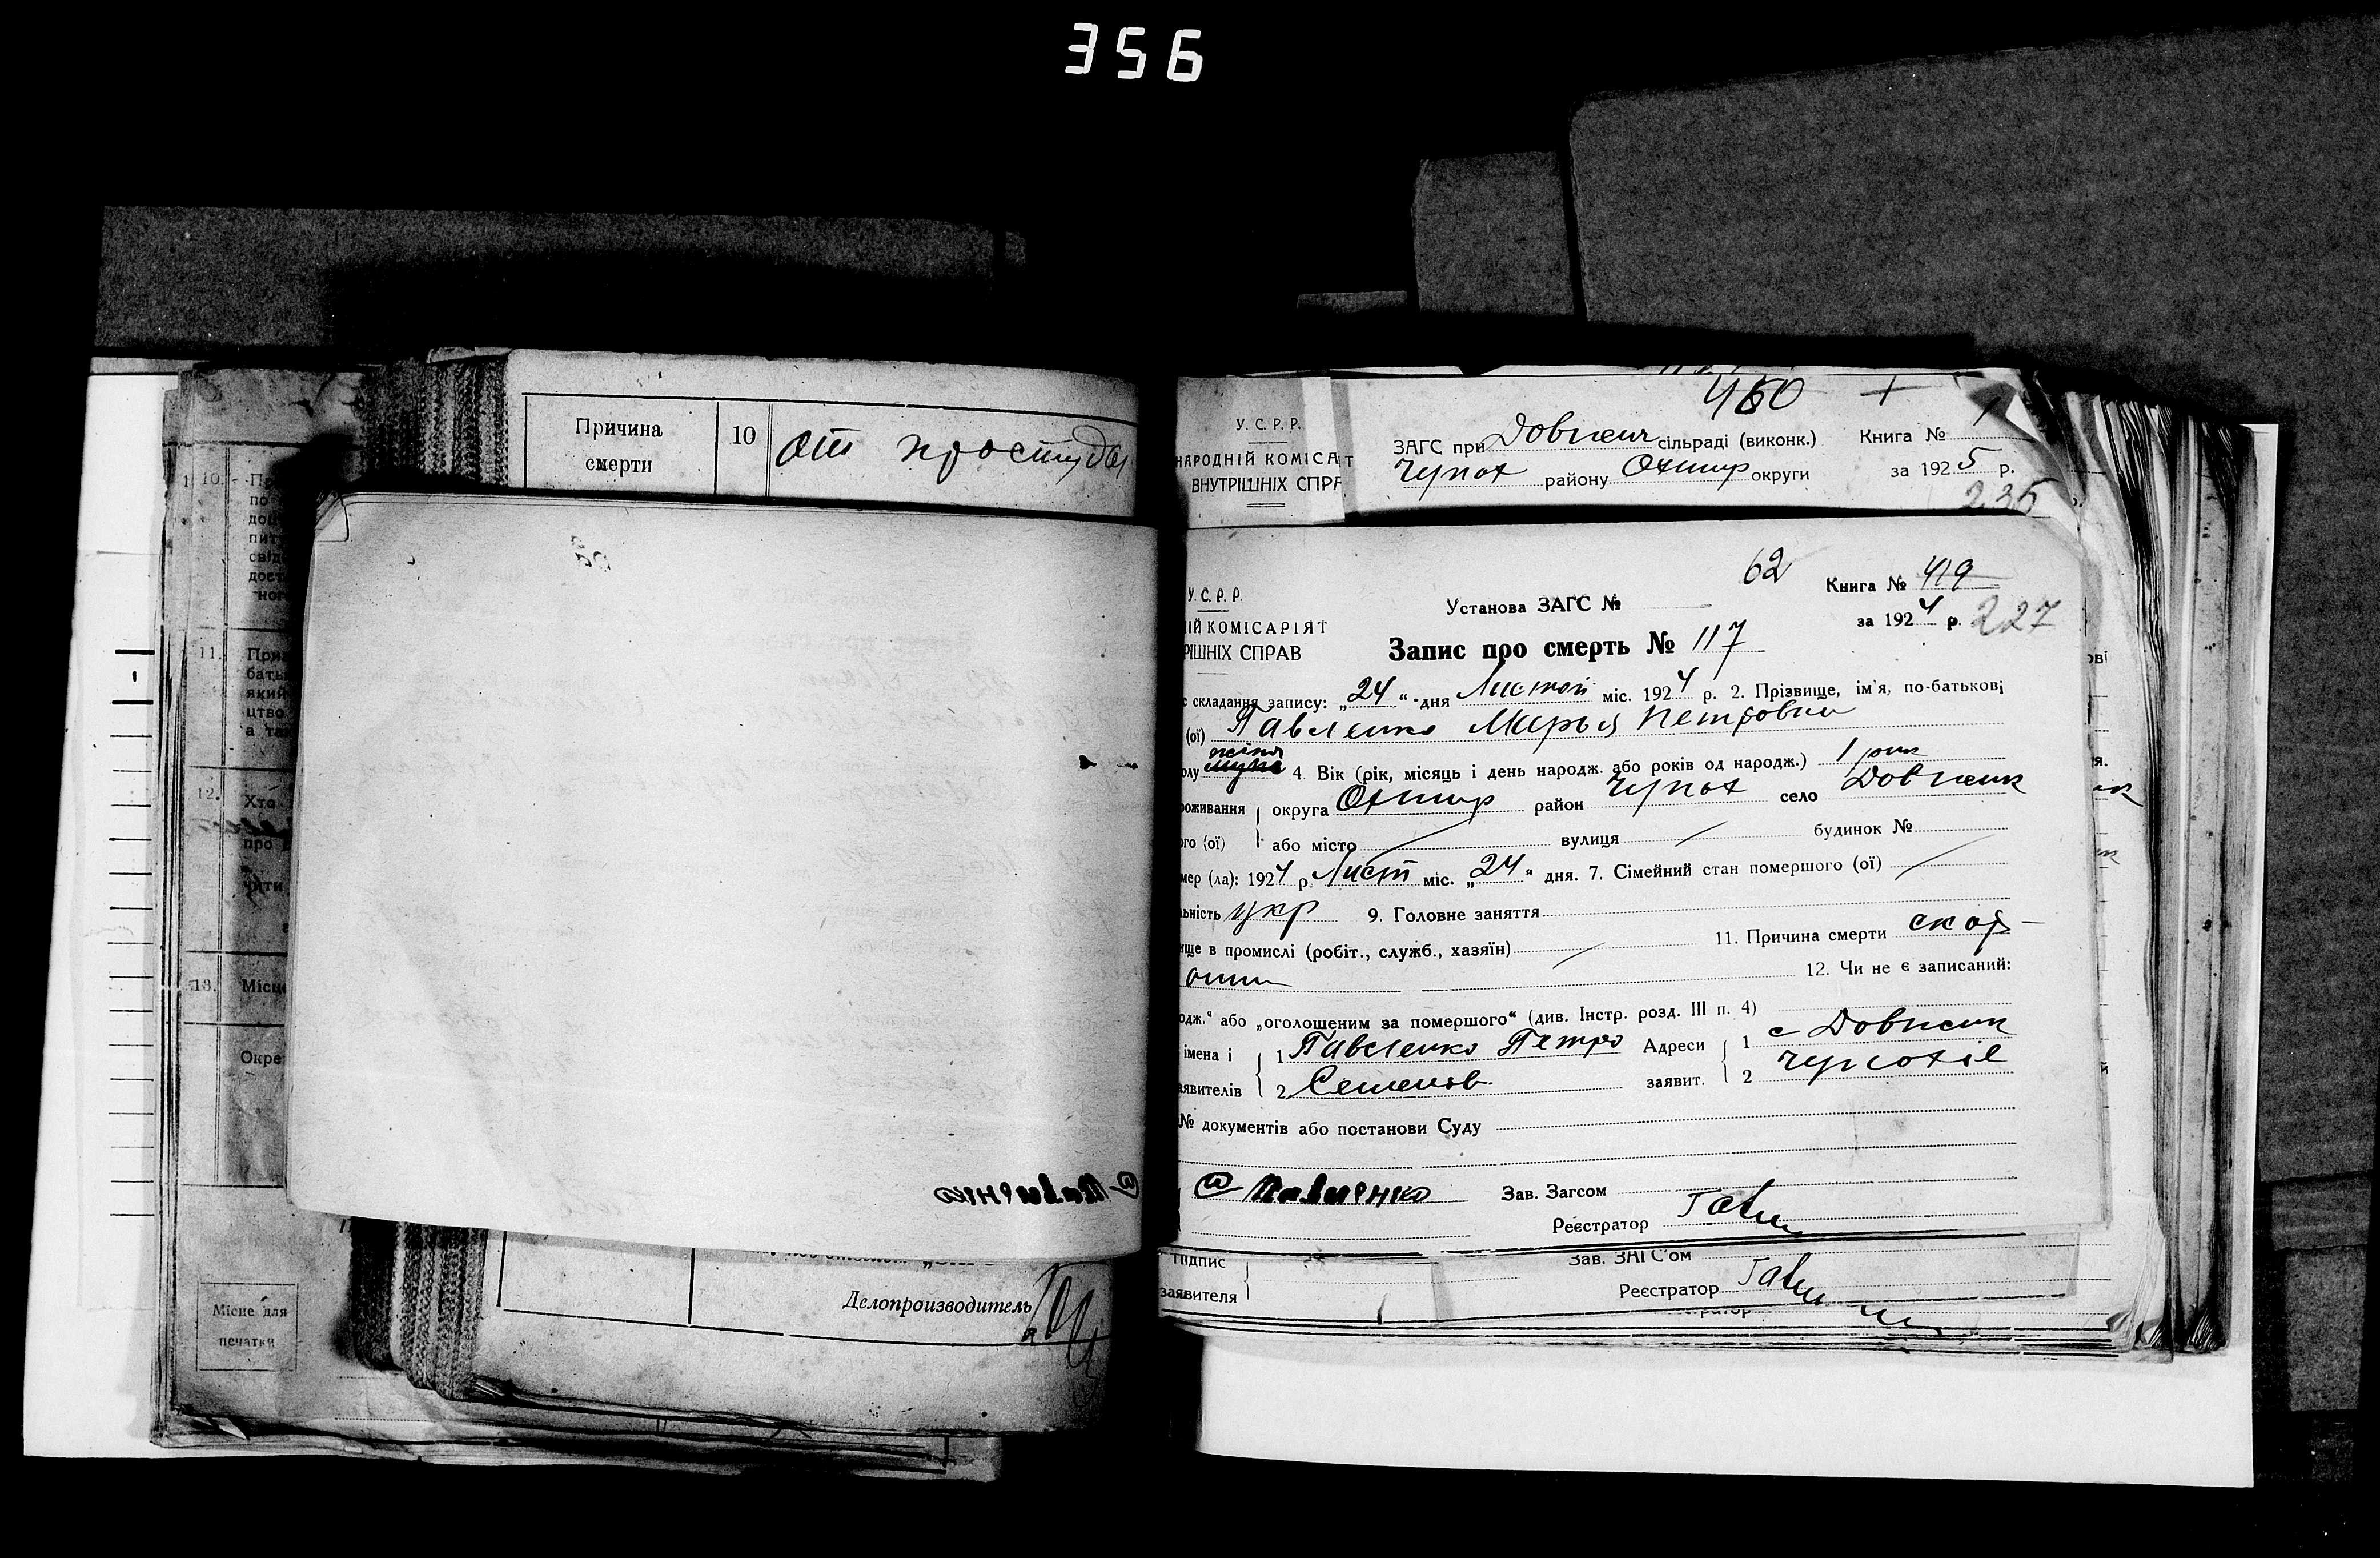 356
Причина
смерти
10
от простуды
10.
11.
12.
Хто
про
13.
Місце
Окре
Місце для
печатки
Делопроизводитель
460
У. С. Р. Р.
НАРОДНІЙ КОМІСАТ
ВНУТРІШНІХ СПР
ЗАГС при Довжик сільраді (виконк.) Книга № 1
Чупах району Охтир округи за 1925 р.
235
62
У. С. Р. Р.
ІЙ КОМІСАРІЯТ
РІШНІХ СПРАВ
Установа ЗАГС №
Книга № 419
за 1924 р. 227
Запис про смерть № 117
с складання запису: „24“ дня Листоп міс. 1924 р. 2. Прізвище, ім'я, по-батькові
(ої) Павленко Марья Петровни
жіноч
олу мужс 4. Вік (рік, місяць і день народж. або років од народж.) 1 рик
роживання округа Охтир район Чупах село Довжик
ого (ої) або місто вулиця будинок №
мер (ла): 1924 р. Лист міс. „24“ дня. 7. Сімейний стан помершого (ої)
льність укр 9. Головне заняття
ище в промислі (робіт., служб., хазяїн) 11. Причина смерти скар-
12. Чи не є записаний:
одж.“ або „оголошеним за помершого“ (див. Інстр. розд. III п. 4)
імена і 1 Павленко Петро Адреси 1 с Довжик
аявителів 2 Семенов заявит. 2
№ документів або постанови Суду
Павленко Зав. Загсом
Реєстратор
Підпис
заявителя
Зав. ЗАГС'ом
Реєстратор